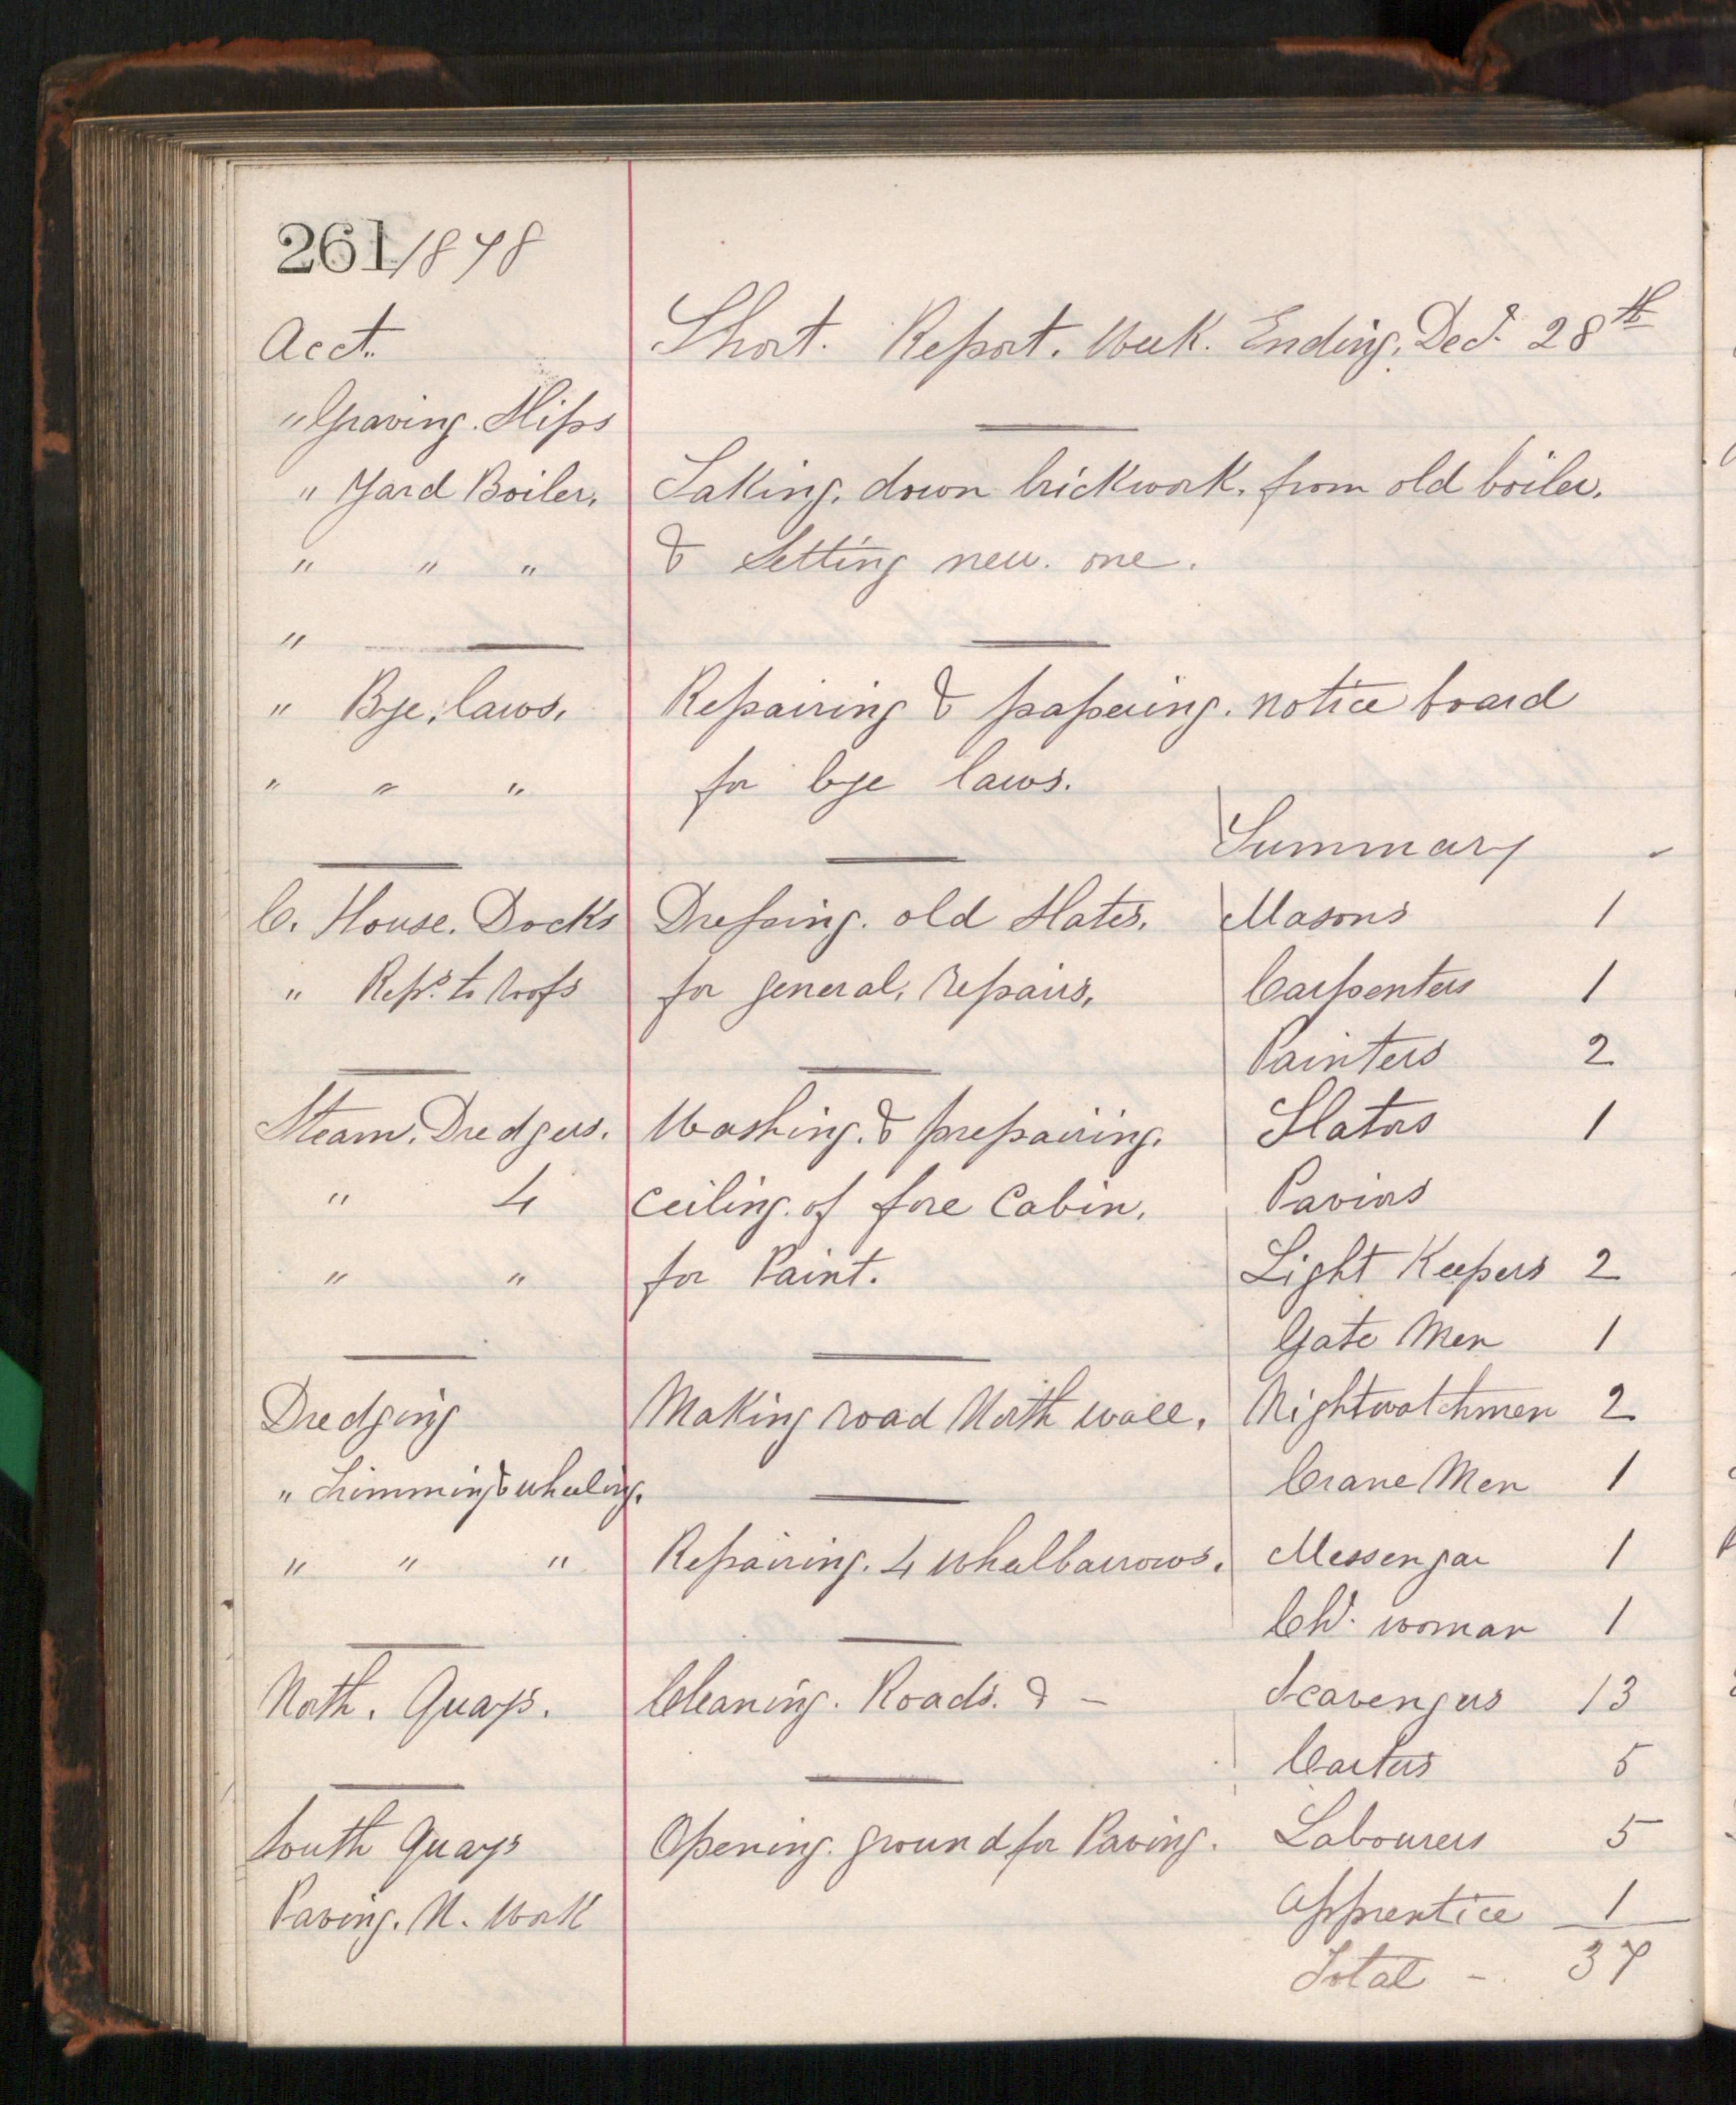 261/1878
Acct. Short. Report. Week. Ending. Dec. 28th
" Graving. Slips
" Yard Boiler. Taking. down brickwork. from old boiler.
" " " & Setting new. one.
"
" Bye, laws. Repairing & papering. notice board
" " " for bye laws.
Summary
C. House. Docks Dressing. old Slates. Masons 1
" Reps. to roofs for general, repairs, Carpenters 1
Painters 2
Steam. Dredgers. Washing. & prepairing. Slators 1
" 4 Ceiling. of fore Cabin. Paviors
" " for Paint. Light Keepers 2
Gate Men 1
Dredging Making road North wall. Nightwatchmen 2
" Trimming & wheeling. Crane Men 1
" " " Repairing. 4 wheelbarrows. Messenger 1
Ch. woman 1
North. Quays. Cleaning. Roads. & - Scavengers 13
Carters 5
South Quays Opening. ground for Paving. Labourers 5
Paving. N. Work Apprentice 1
Total - 37